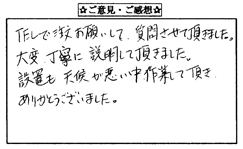 ☆ご意見・ご感想☆
注文お願いして、質問させて頂きました。
大変丁寧に説明して頂きました。
設置も天候が悪い中作業して頂き
ありがとうございました。